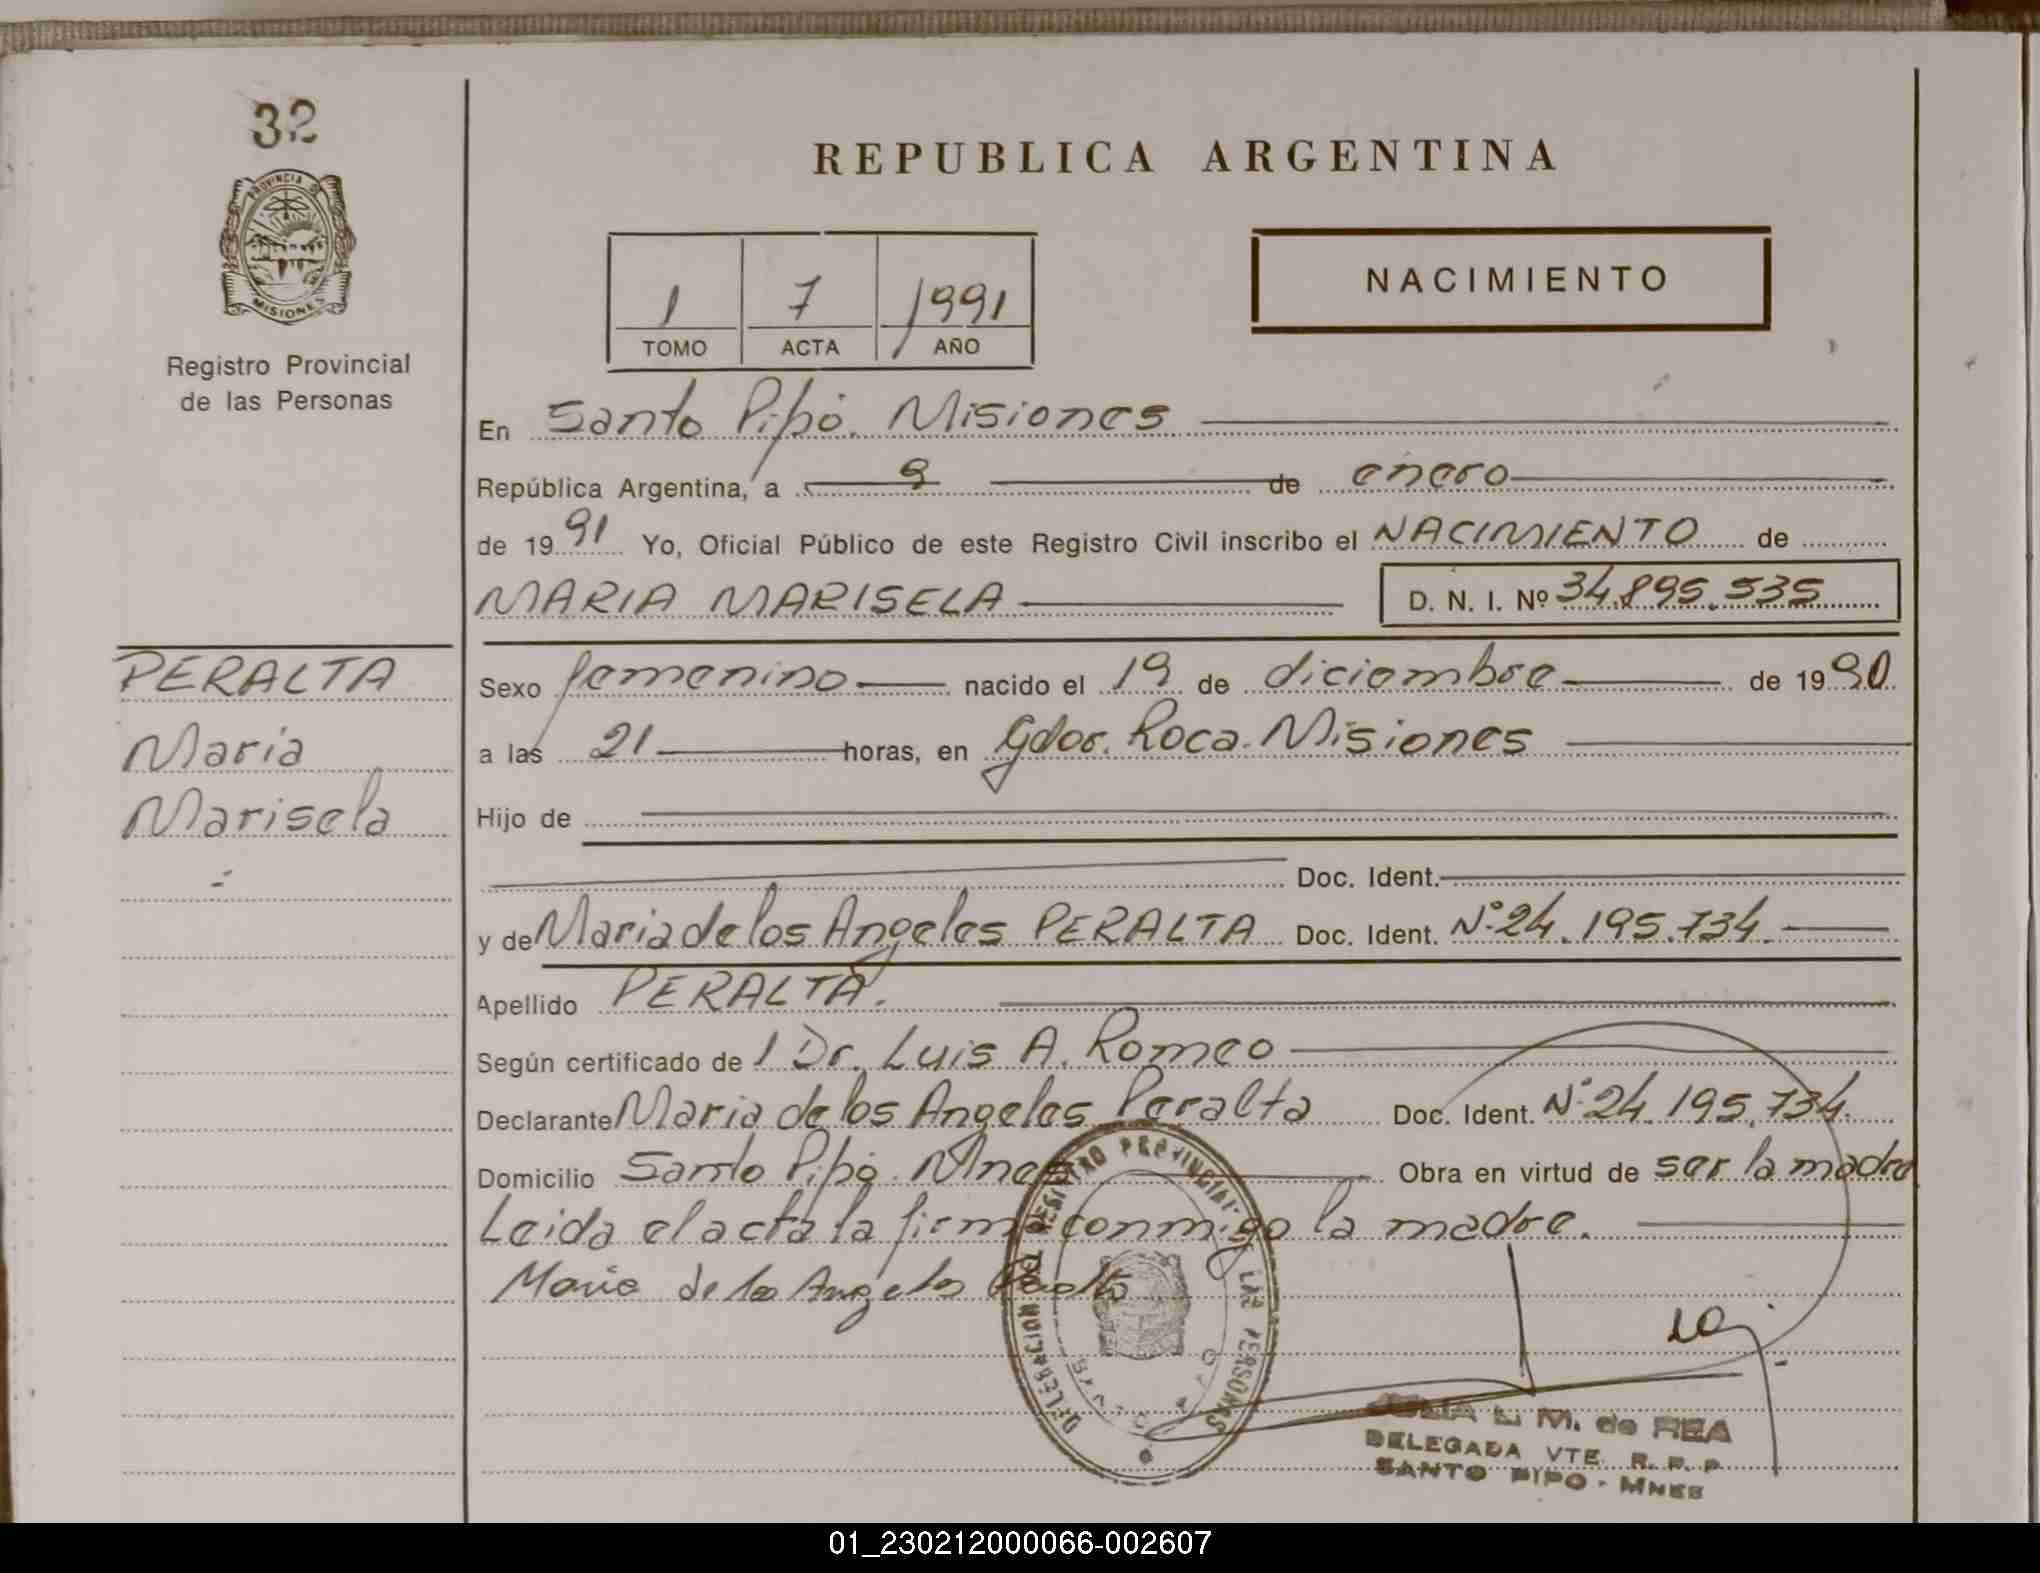 32
PROVINCIA DE
MISIONES
Registro Provincial
de las Personas
REPUBLICA ARGENTINA
1 7 1991
TOMO ACTA AÑO
NACIMIENTO
En Santo Pipó. Misiones
República Argentina, a 9 de enero
de 1991 Yo, Oficial Público de este Registro Civil inscribo el NACIMIENTO de
MARIA MARISELA D. N. I. Nº 34.895.535
PERALTA
Maria
Marisela
Sexo femenino nacido el 19 de diciembre de 1990
a las 21 horas, en Gdor. Roca. Misiones
Hijo de
Doc. Ident.
y de Maria de los Angeles PERALTA Doc. Ident. Nº 24.195.734.
Apellido PERALTA.
Según certificado de l Dr. Luis A. Romeo
Declarante Maria de los Angeles Peralta Doc. Ident. Nº 24.195.734.
Domicilio Santo Pipó. Mnes Obra en virtud de ser la madre
Leida el acta la firma conmigo la madre.
Maria de los Angeles Peralta
DELEGACION DEL REGISTRO PROVINCIAL LAS PERSONAS
L. M. de REA
DELEGADA VTE. R. P. P.
SANTO PIPO - MNES
01_230212000066-002607